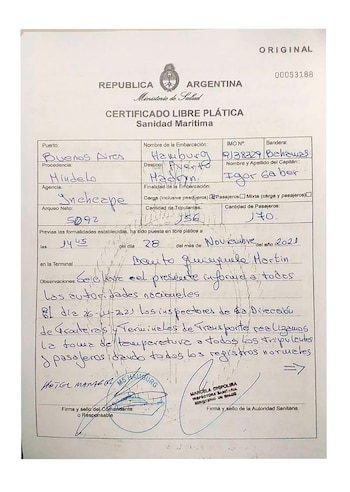 ORIGINAL
00053188
REPUBLICA ARGENTINA
Ministerio de Salud
CERTIFICADO LIBRE PLÁTICA
Sanidad Marítima
Puerto: Nombre de la Embarcación: IMO Nº: Bandera:
Buenos Aires Hamburg 9138329 Bahamas
Procedencia: Destino: Nombre y Apellido del Capitán:
Mindelo Puerto Madryn. Igor Gaber
Agencia: Finalidad de la Embarcación:
Inchcape Carga (inclusive pesquera) Pasajeros Mixta (carga y pasajeros)
Arqueo Neto: Cantidad de Tripulantes: Cantidad de Pasajeros:
5092 156 170.
Previas las formalidades establecidas, ha sido puesta en libre plática a
las 14 45 del día 28 del mes de Noviembre del año 2021
en la Terminal Benito Quinquela Martin
Observaciones: el presente informe a todas
las autoridades nacionales
El día los inspectores de la Dirección
de Fronteras y Terminales de Transporte realizamos
la toma de temperatura a todos los tripulantes
y pasajeros dando todos los registros normales
HOTEL MANAGER
MS HAMBURG
MARCELA
MINISTERIO DE SALUD
Firma y sello del Comandante
o Responsable
Firma y sello de la Autoridad Sanitaria